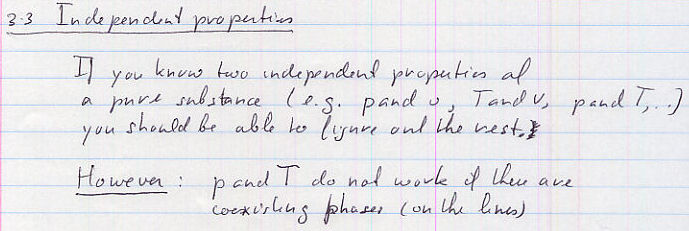 3.3 Independent properties
If you know two independent properties of
a pure substance (e.g. p and v, T and v, p and T,..)
you should be able to figure out the rest.
However: p and T do not work if there are
coexisting phases (on the lines)